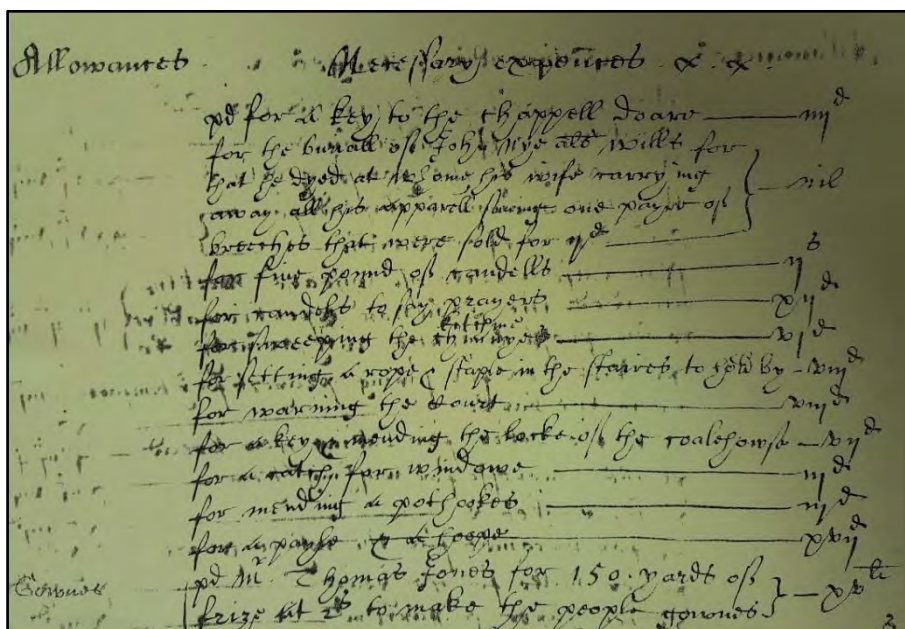 Allowances Necessary expences &. &.
pd for a key to the Chappell doare iiijd
for the buriall of John Nye als wills for
that he dyed at whome his wife carrying
away all his apparell saving one payre of
breeches that were sold for ijd nil
for five pound of candells ijs
for candells to say prayers xijd
for sweeping the kittchine chimnyes vjd
for setting a rope & staple in the staires to hold by viijd
for warning the Court viijd
for a key & mending the locke of the coalehowse vijd
for a catch for windowe iijd
for mending a pothookes iijd
for a payle & a hoope xvijd
Gownes pd Mr. Thomas Jones for 150 yards of
frize at 2s to make the people gownes xvli